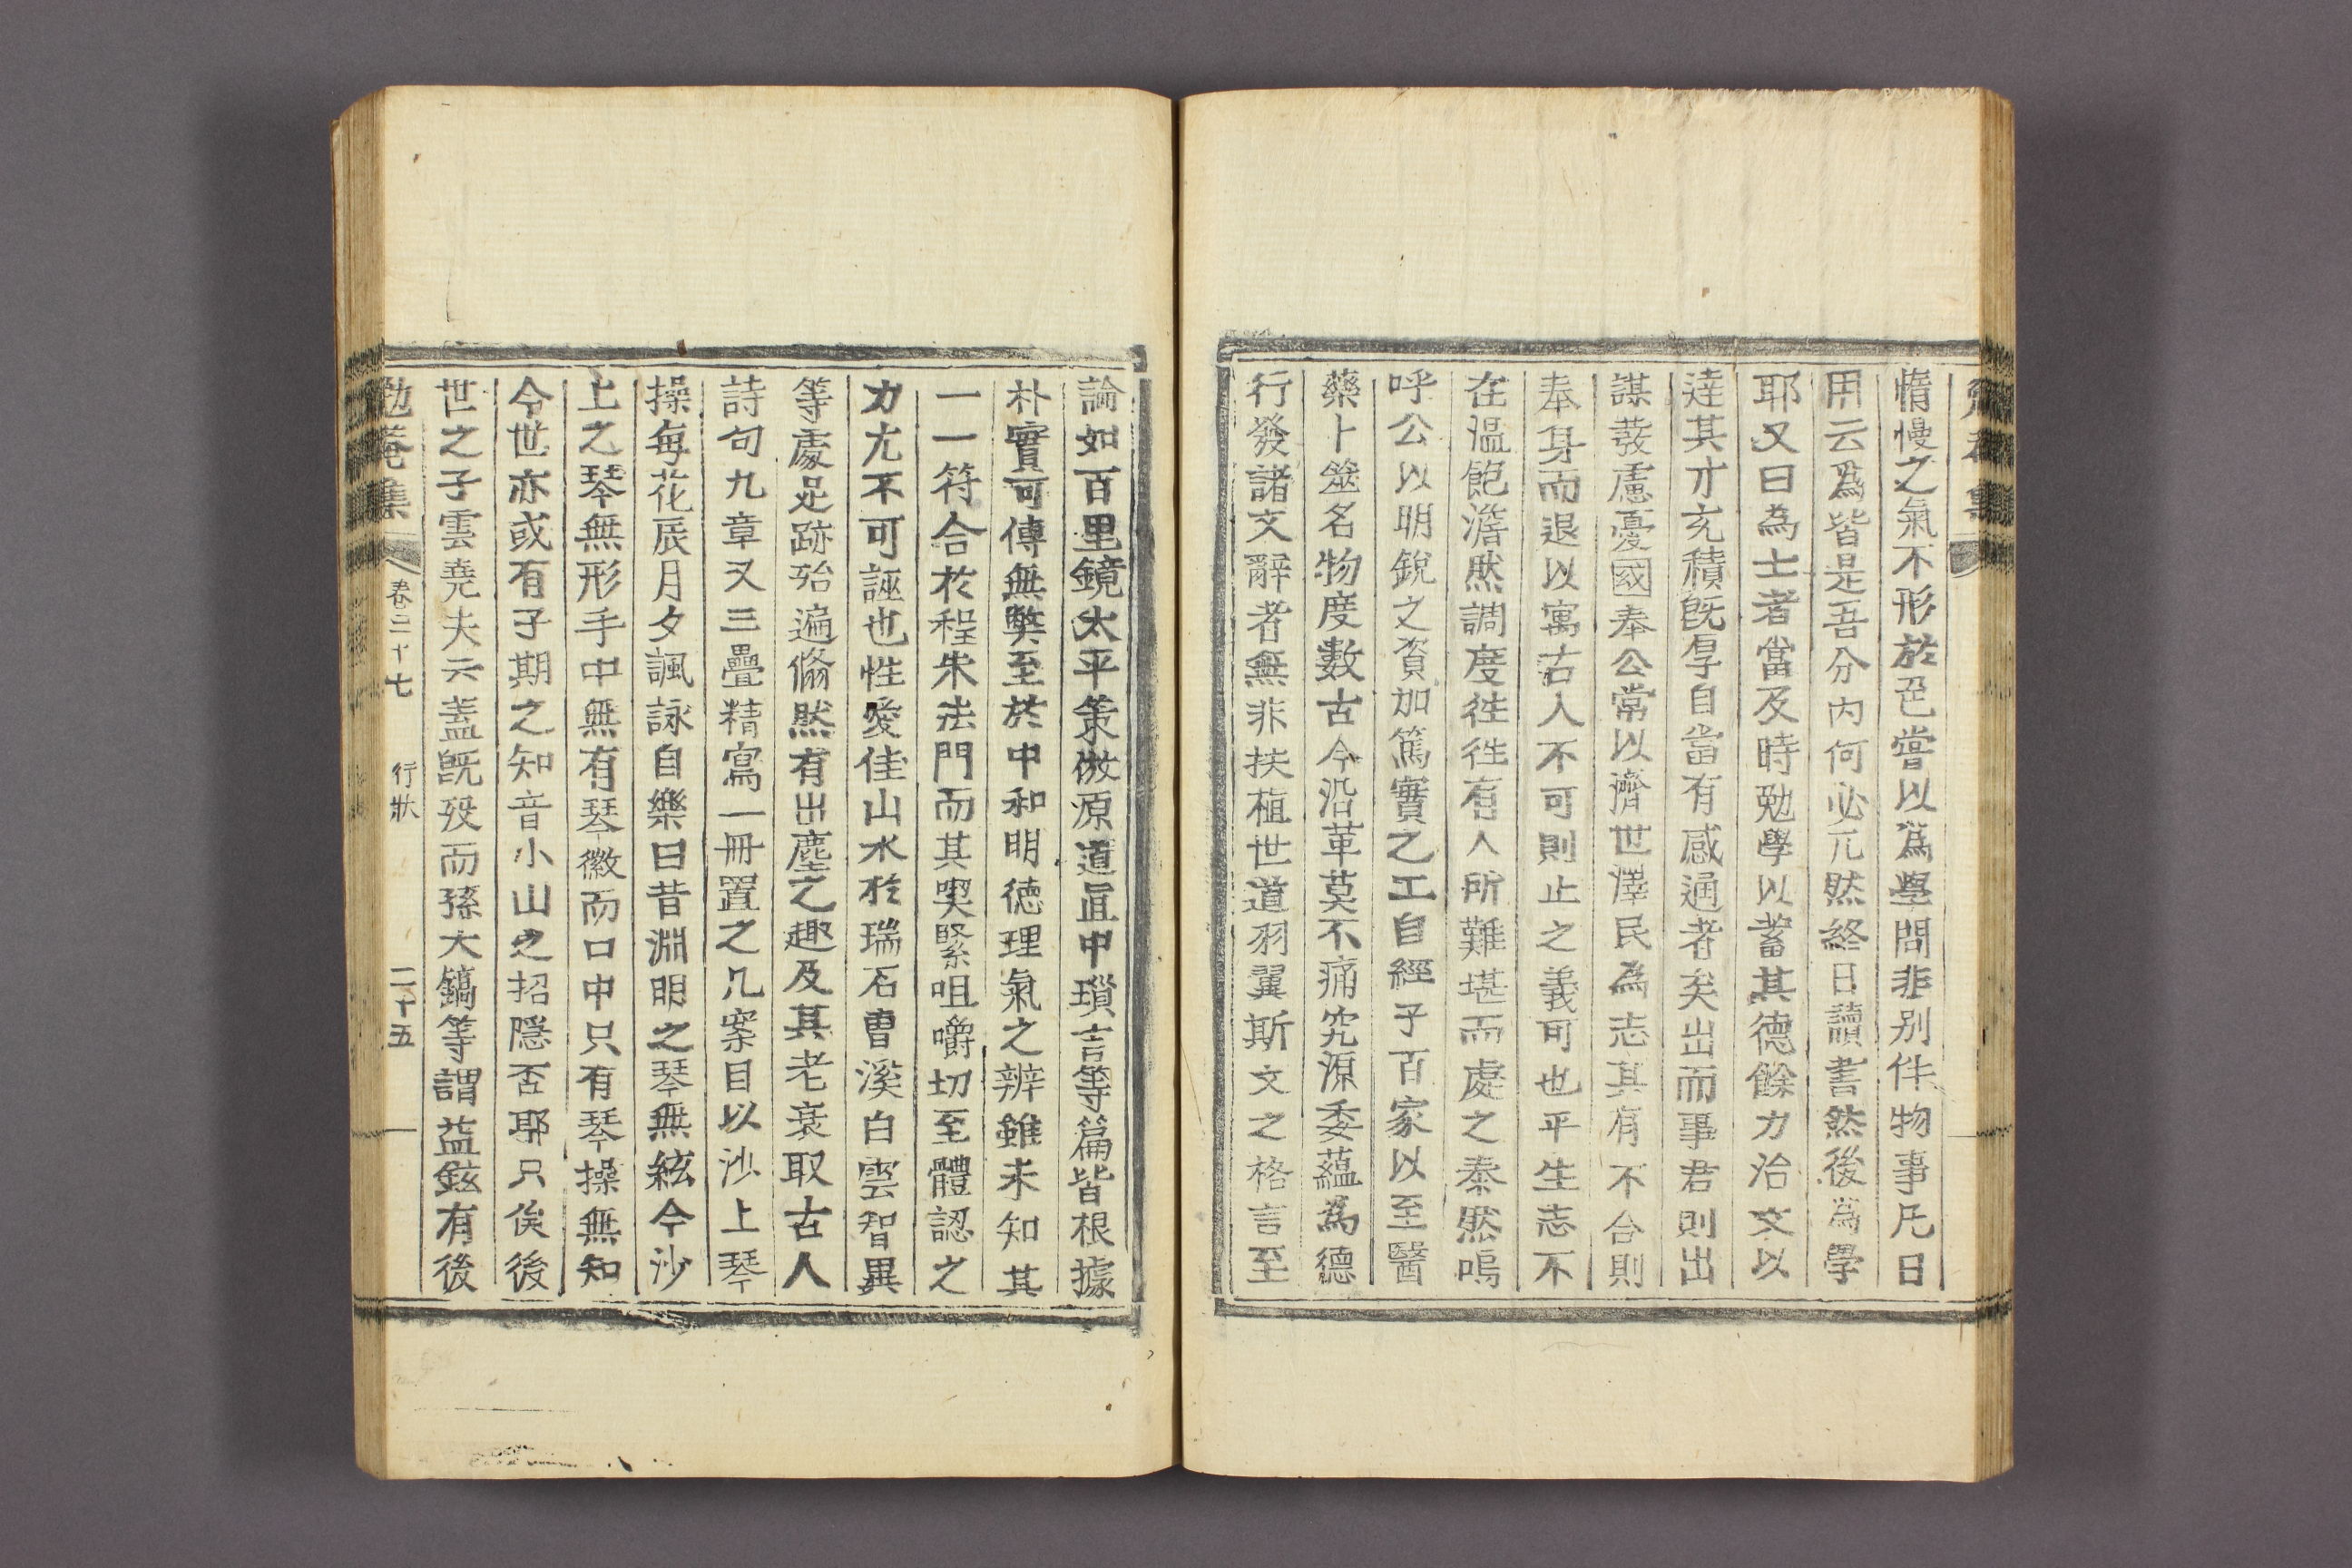 惰慢之氣不形於色嘗以爲學問非別件物事凡日
用云爲皆是吾分內何必兀然終日讀書然後爲學
耶又曰為士者當及時勉學以蓄其德餘力治文以
達其才充積旣厚自當有感通者矣出而事君則出
謀發慮憂國奉公常以濟世澤民為志其有不合則
奉身而退以寓古人不可則止之義可也平生志不
在溫飽澹然調度徃徃有人所難堪而處之泰然嗚
呼公以明銳之資加篤實之工自經子百家以至醫
藥卜筮名物度數古今沿革莫不痛究源委蘊爲德
行發諸文辭者無非扶植世道羽翼斯文之格言至
論如百里鏡太平策倣原道眞中瑣言等篇皆根據
朴實可傳無弊至於中和明德理氣之辨雖未知其
一一符合於程朱法門而其喫緊咀嚼切至體認之
力尤不可誣也性愛佳山水於瑞石曹溪白雲智異
等處足跡殆遍翛然有出塵之趣及其老衰取古人
詩句九章又三疊精寫一冊置之几案目以沙上琴
操每花辰月夕諷詠自樂曰昔淵明之琴無絃今沙
上之琴無形手中無有琴徽而口中只有琴操無知
今世亦或有子期之知音小山之招隱否耶只俟後
世之子雲堯夫云盖旣歿而孫大鎬等謂益鉉有後
勉菴集 卷三十七 行狀 二十五